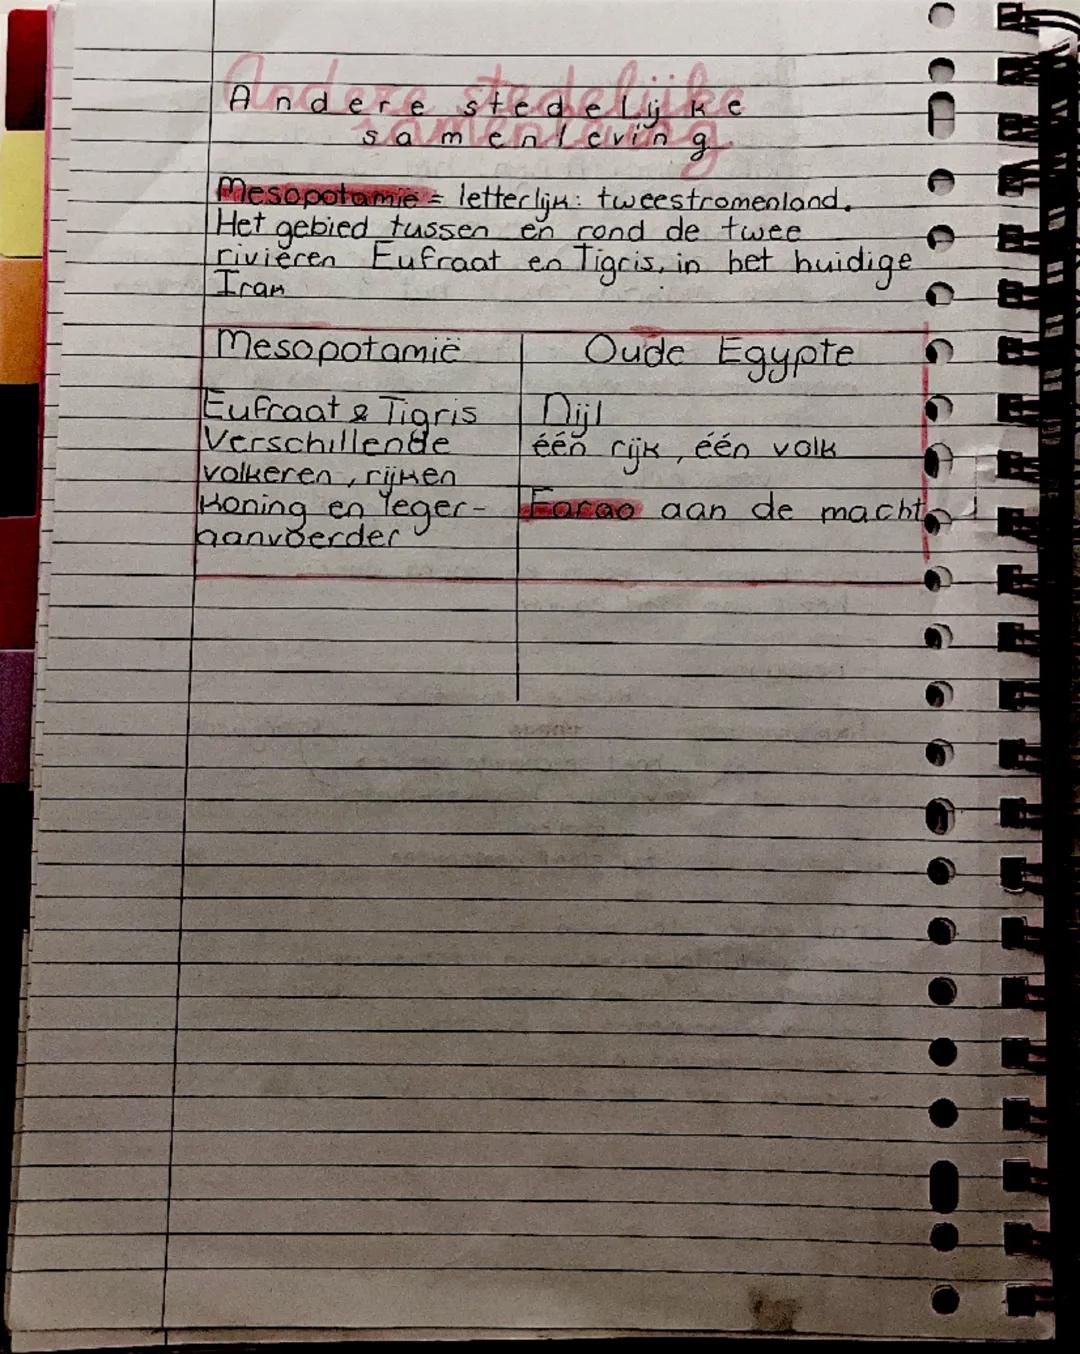 Andere stedelijke
samenleving
Mesopotamië = letterlijk: tweestromenland.
Het gebied tussen en rond de twee
rivieren Eufraat en Tigris, in het huidige
Iran
Mesopotamië
Oude Egypte
Eufraat & Tigris
Nijl
Verschillende
één rijk, één volk
volkeren, rijken
koning en leger-
Farao aan de macht
aanvoerder